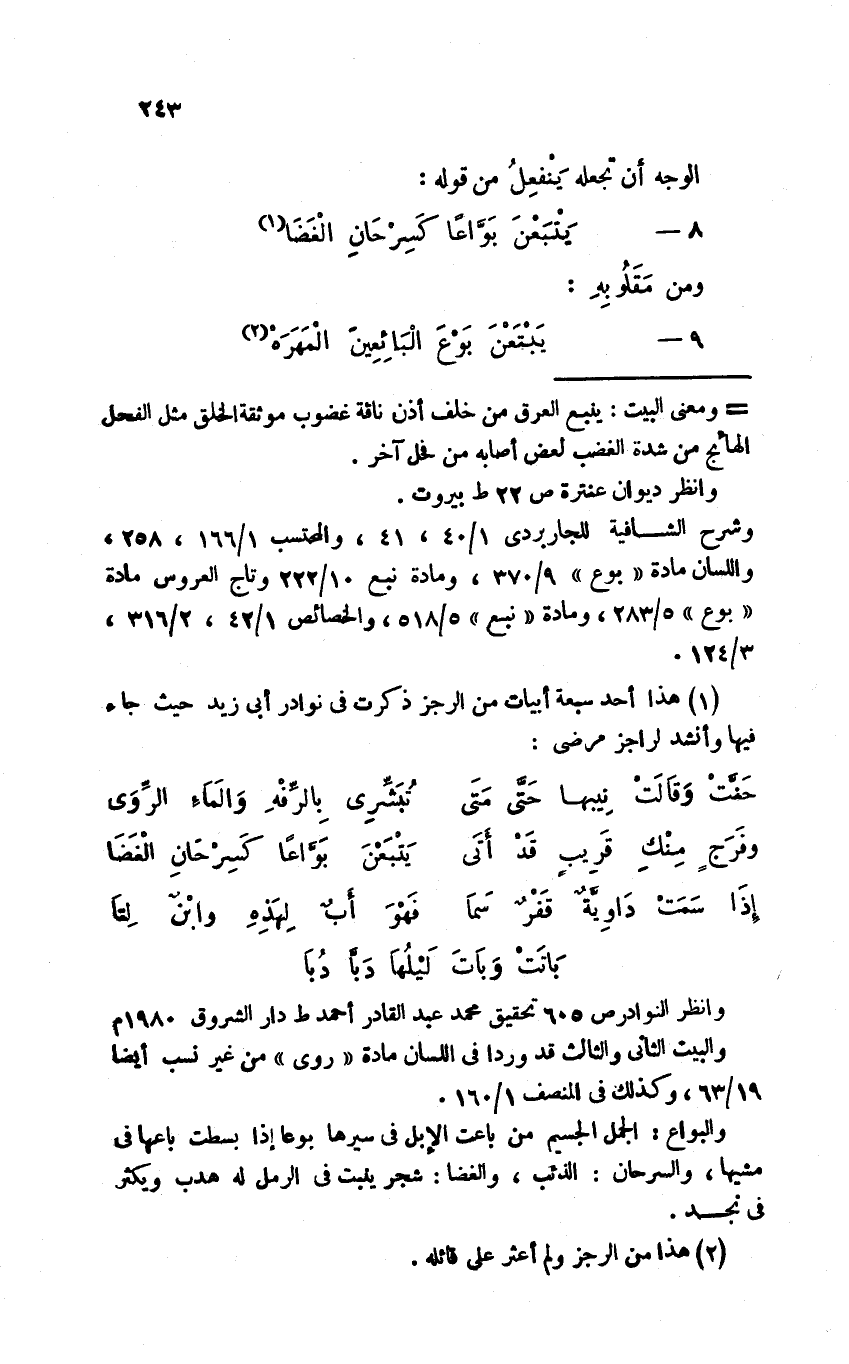 ٢٤٣
الوجه أن تجعله يَنْفعِلُ من قوله :
٨ – يَتْبَعْنَ بَوَّاعًا كَسِرْحَانِ الْغَضَا(١)
ومن مَقَلُوبِهِ :
٩ – يَبْتَعْنَ بَوْعَ الْبَائِعِينَ الْمَهَرَهْ(٢)
= ومعنى البيت : ينبع العرق من خلف أذن ناقة غضوب موثقة الخلق مثل الفحل
الهائج من شدة الغضب لعض أصابه من فحل آخر .
وانظر ديوان عنترة ص ٢٢ ط بيروت .
وشرح الشافية للجاربردى ٤٠/١ ، ٤١ ، والمحتسب ١٦٦/١ ، ٢٥٨ ،
واللسان مادة « بوع » ٣٧٠/٩ ، ومادة نبع ٢٢٢/١٠ وتاج العروس مادة
« بوع » ٢٨٣/٥ ، ومادة « نبع » ٥١٨/٥ ، والخصائص ٤٢/١ ، ٣١٦/٢ ،
١٢٤/٣ .
(١) هذا أحد سبعة أبيات من الرجز ذكرت فى نوادر أبى زيد حيث جاء
فيها وأنشد لراجز مرضى :
حَفَّتْ وَقَالَتْ نِيبها حَتَّى مَتَى تُبَشِّرِى بِالرِّفْهِ وَالْمَاءِ الرِّوَى
وفَرَجٍ مِنْكِ قَرِيبٍ قَدْ أَتَى يَتْبَعْنَ بَوَّاعًا كَسِرْحَانِ الْغَضَا
إِذَا سَمَتْ دَاوِيَّةٌ قَفْرٌ سَمَا فَهْوَ أَبٌ لِهَذِهِ وابْنٌ لِتَا
بَاتَتْ وَبَاتَ لَيْلُهَا دَبًّا دُبَا
وانظر النوادر ص ٦٠٥ تحقيق محمد عبد القادر أحمد ط دار الشروق ١٩٨٠م
والبيت الثانى والثالث قد وردا فى اللسان مادة « روى » من غير نسب أيضا
٦٣/١٩ ، وكذلك فى المنصف ١٦٠/١ .
والبواع : الجمل الجسيم من باعت الإبل فى سيرها بوعا إذا بسطت باعها فى
مشيها ، والسرحان : الذئب ، والغضا : شجر ينبت فى الرمل له هدب ويكثر
فى نجد .
(٢) هذا من الرجز ولم أعثر على قائله .